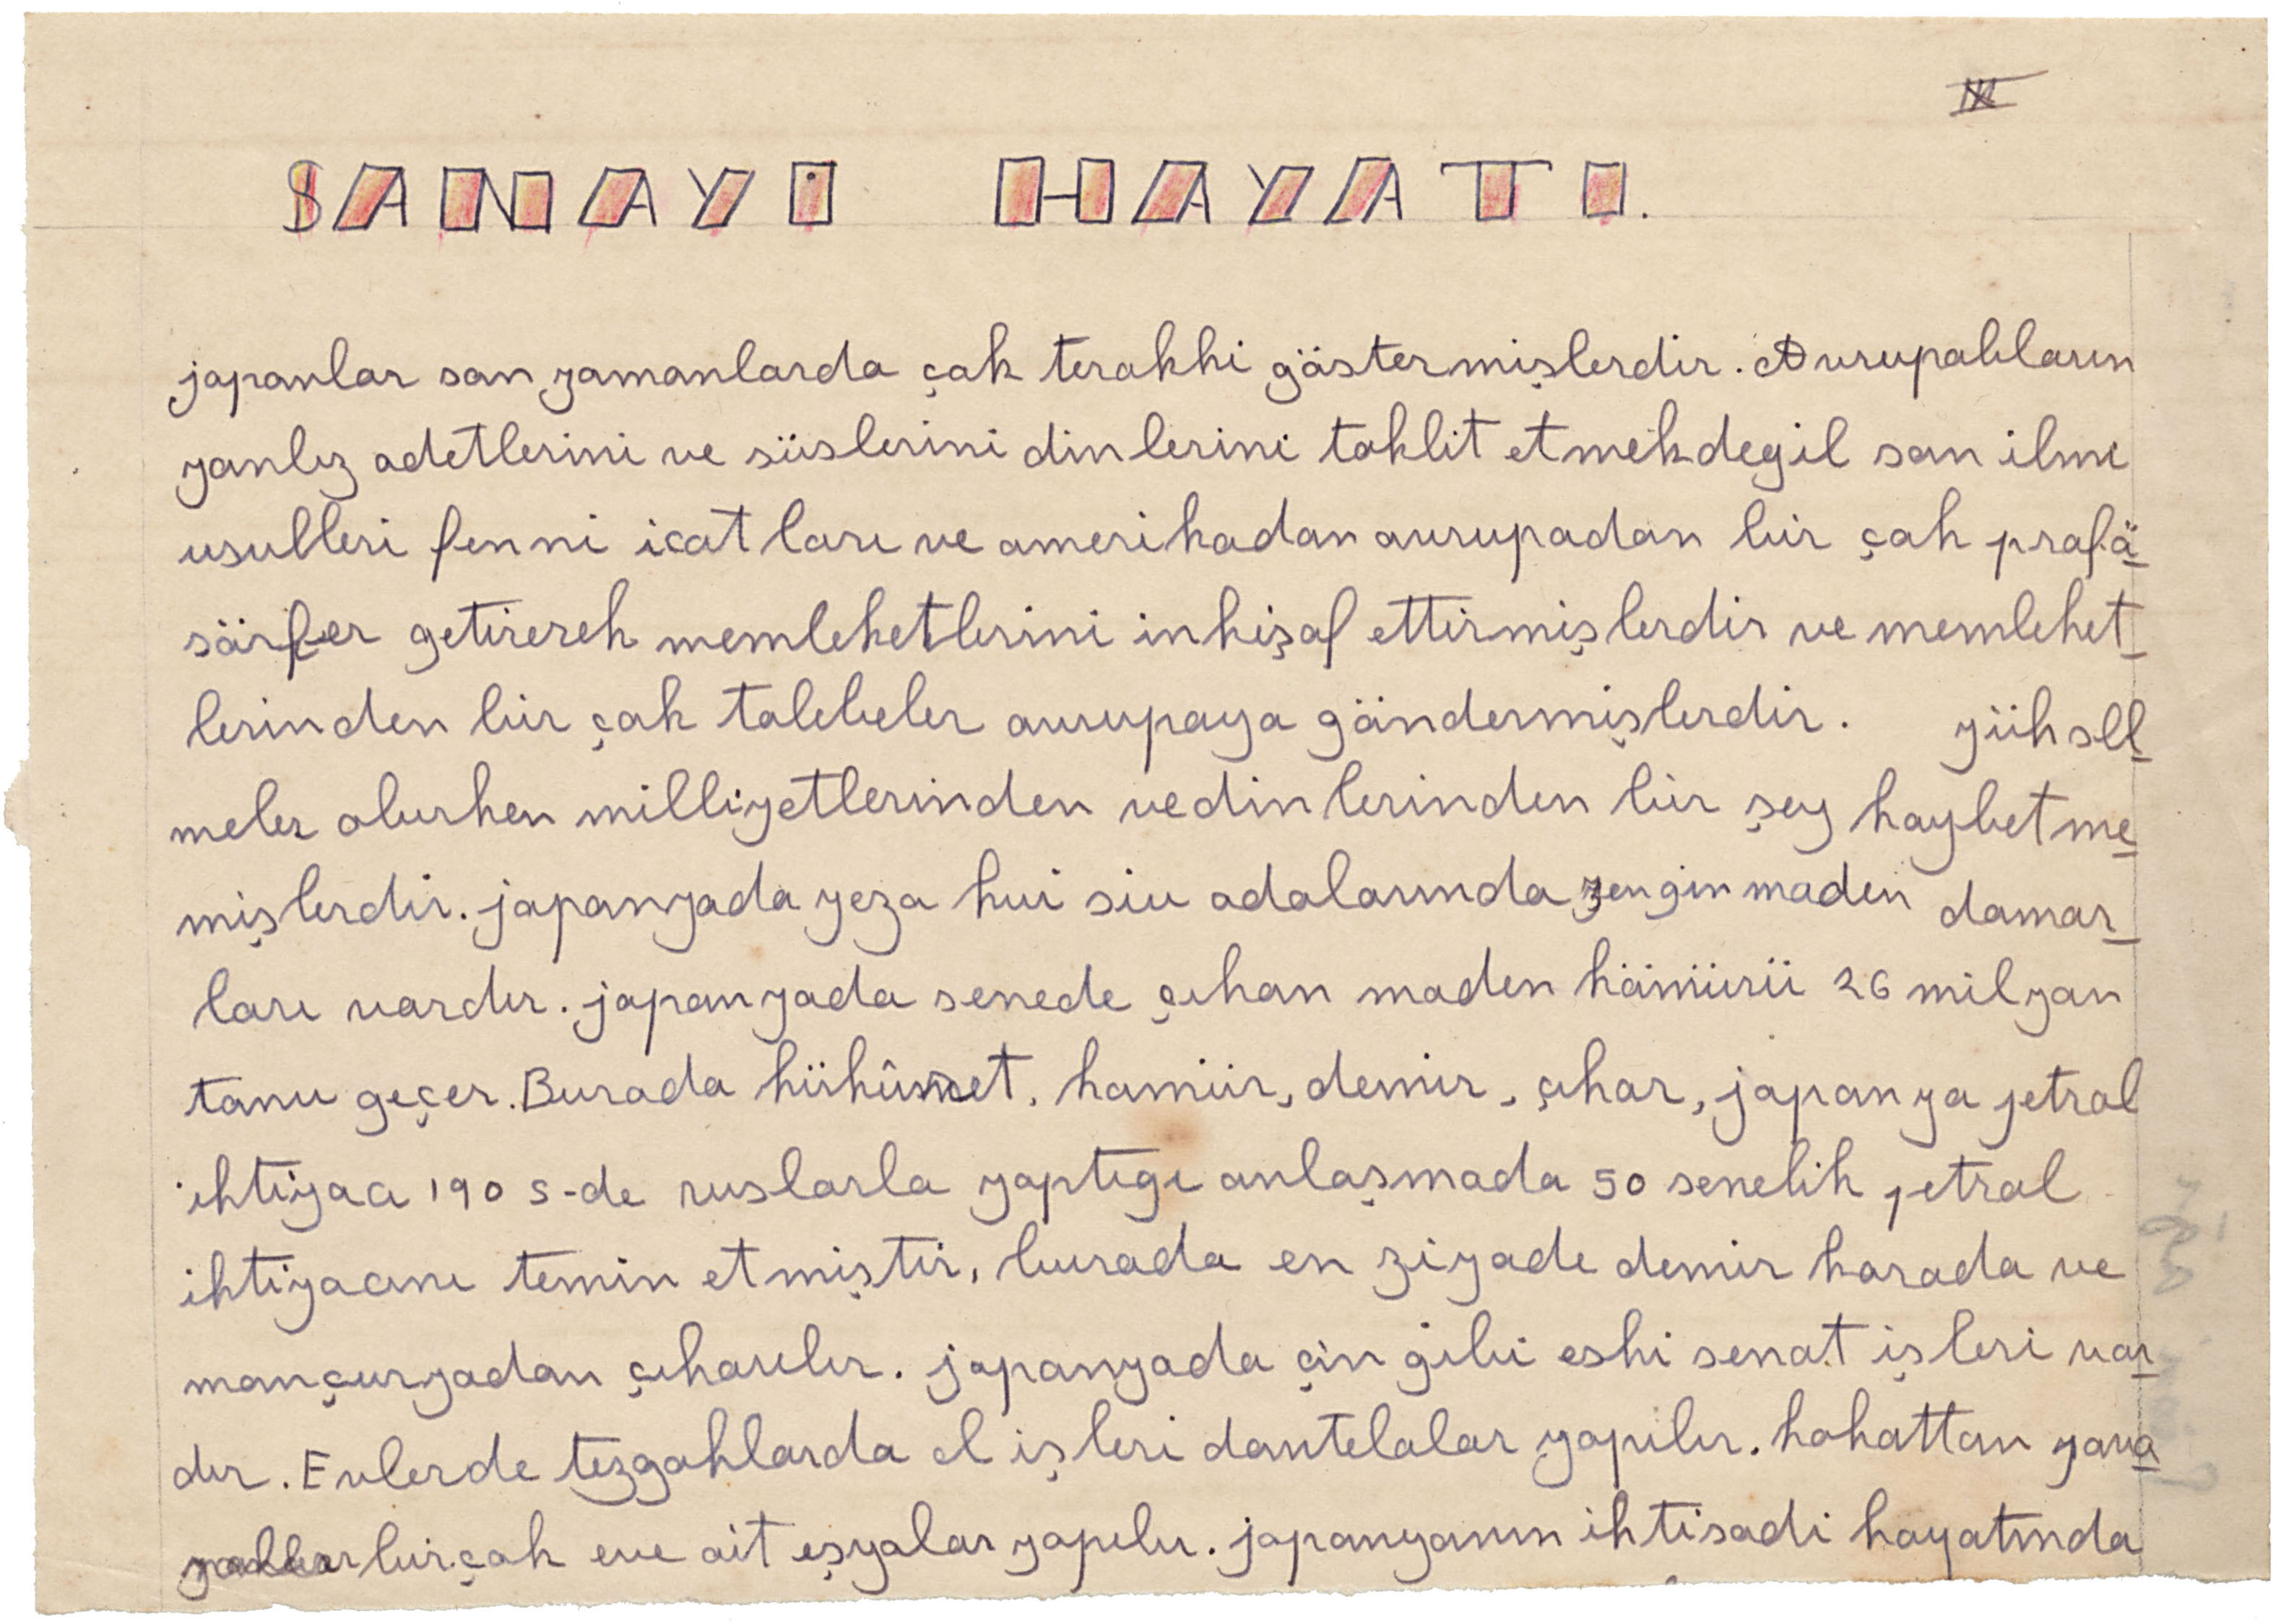 SANAYİ HAYATI.
japonlar son zamanlarda çok terakki göstermişlerdir. Avrupalıların
yanlız adetlerini ve süslerini dinlerini taklit etmek degil son ilmi
usulleri fenni icatları ve amerikadan avrupadan bir çok profö-
sörler getirerek memleketlerini inkişaf ettirmişlerdir ve memleket-
lerinden bir çok talebeler avrupaya göndermişlerdir. yüksel-
meler olurken milliyetlerinden ve dinlerinden bir şey kaybetme-
mişlerdir. japonyada yezo kui siu adalarında zengin maden damar-
ları vardır. japonyada senede çıkan maden kömürü 26 milyon
tonu geçer. Burada hükûmet, kömür, demir, çıkar, japonya petrol
ihtiyacı 1905-de ruslarla yaptıgı anlaşmada 50 senelik petrol
ihtiyacını temin etmiştir, burada en ziyade demir korada ve
mançuryadan çıkarılır. japonyada çin gibi eski senat işleri var-
dır. Evlerde tezgahlarda el işleri dantelalar yapılır.
bir çok eve ait eşyalar yapılır. japonyanın iktisadi hayatında